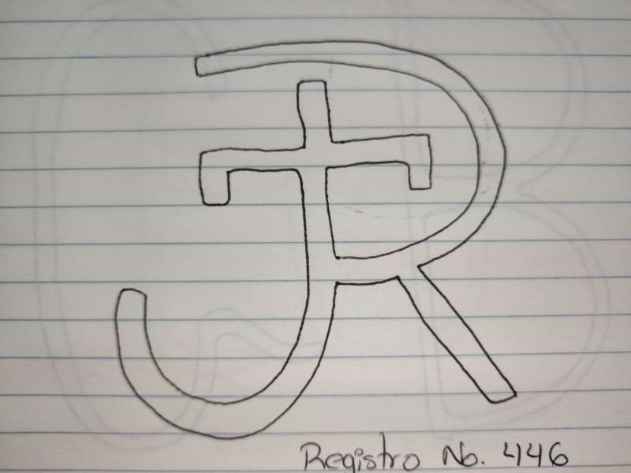 Registro No. 446